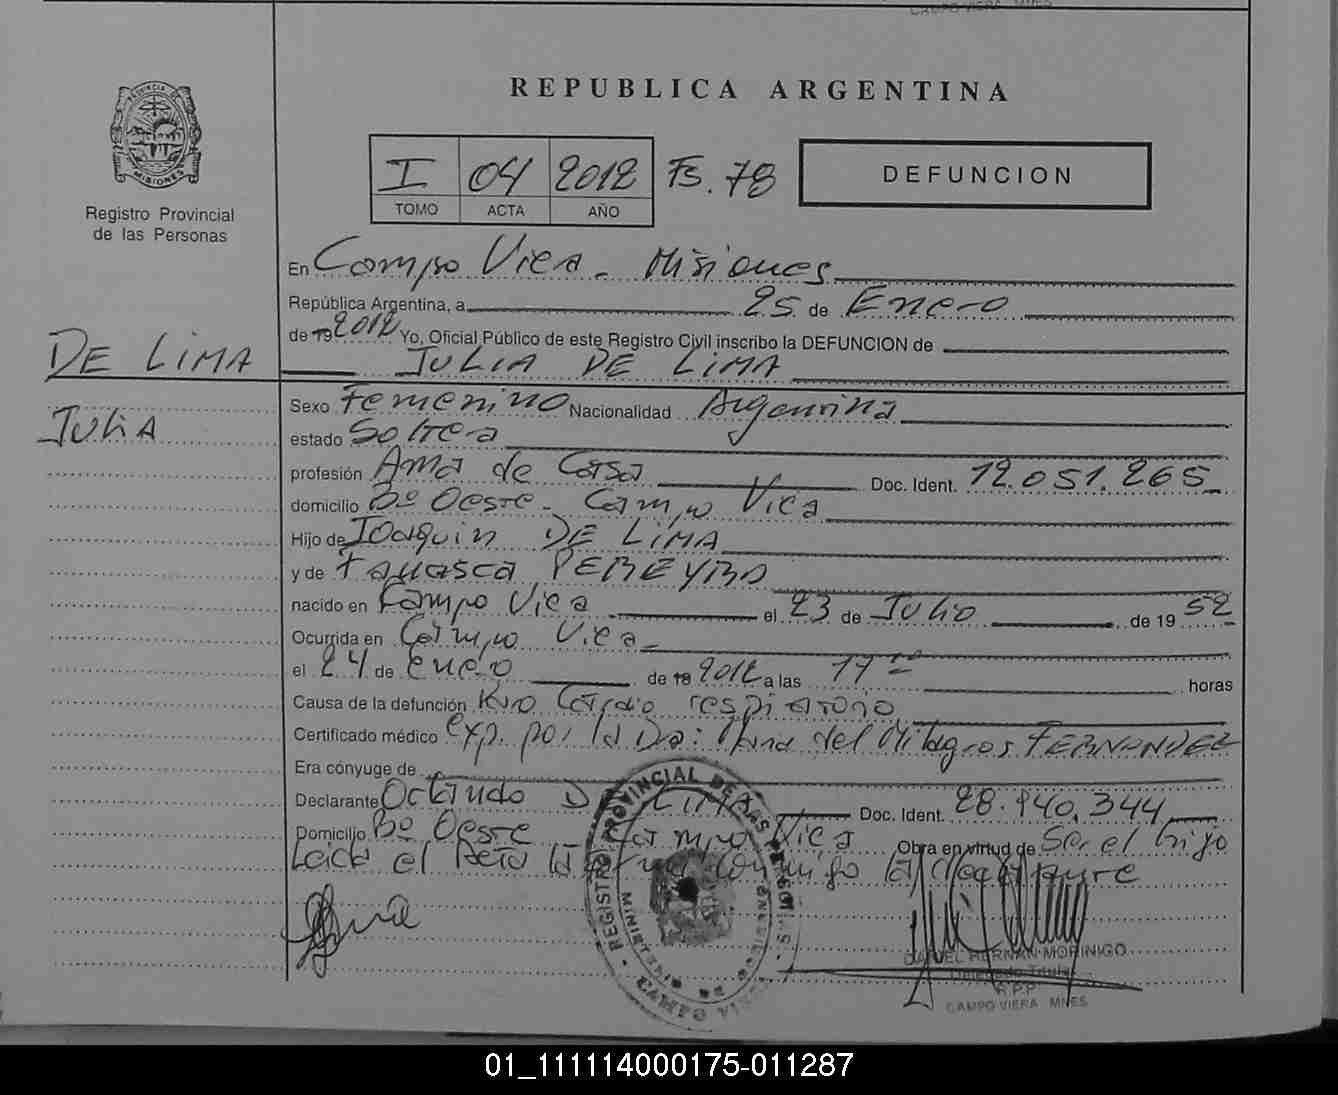 CAMPO VIERA MNES
REPUBLICA ARGENTINA
PROVINCIA DE
MISIONES
Registro Provincial
de las Personas
I 04 2012 Fs. 78
TOMO ACTA AÑO
DEFUNCION
En Campo Viera - Misiones
República Argentina, a 25 de Enero
de 19 2012 Yo, Oficial Público de este Registro Civil inscribo la DEFUNCION de
DE LIMA JULIA DE LIMA
Sexo Femenino Nacionalidad Argentina
JULIA
estado Soltera
profesión Ama de Casa Doc. Ident. 12.051.265
domicilio Bº Oeste - Campo Viera
Hijo de Joaquin DE LIMA
y de PEREYRA
nacido en Campo Viera el 23 de Julio de 19 52
Ocurrida en Campo Viera
el 24 de Enero de 19 2012 a las 17 horas
Causa de la defunción Paro Cardio respiratorio
Certificado médico exp. por la Dra: Maria del Milagros FERNANDEZ
Era cónyuge de
Declarante Octavido DE LIMA Doc. Ident. 28.940.344
Domicilio Bº Oeste Campo Viera Obra en virtud de Ser el hijo
Leida el Acta la firma conmigo el declarante
REGISTRO PROVINCIAL DE LAS PERSONAS
DANIEL HERNAN MORINIGO
Delegado Titular
R.P.P.
CAMPO VIERA MNES
01_111114000175-011287